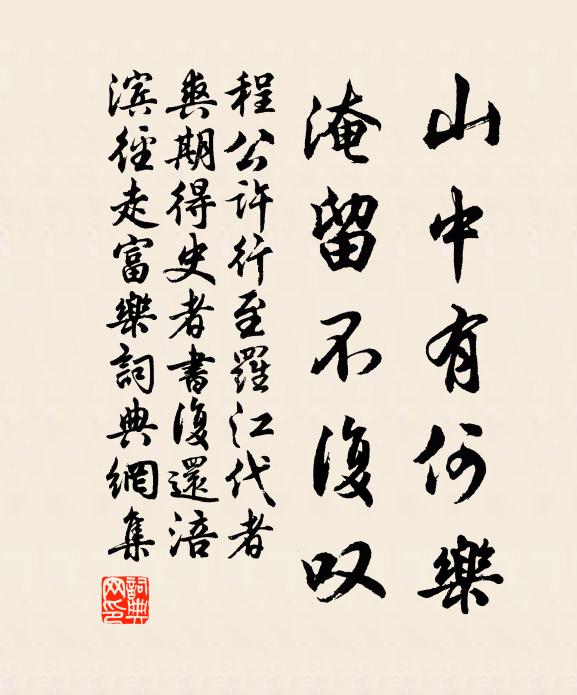 山中有何樂
淹留不復叹
程公許行至羅江代者
爽期得史者書復還涪
滨徑走富樂詞典網集
詞典
网印